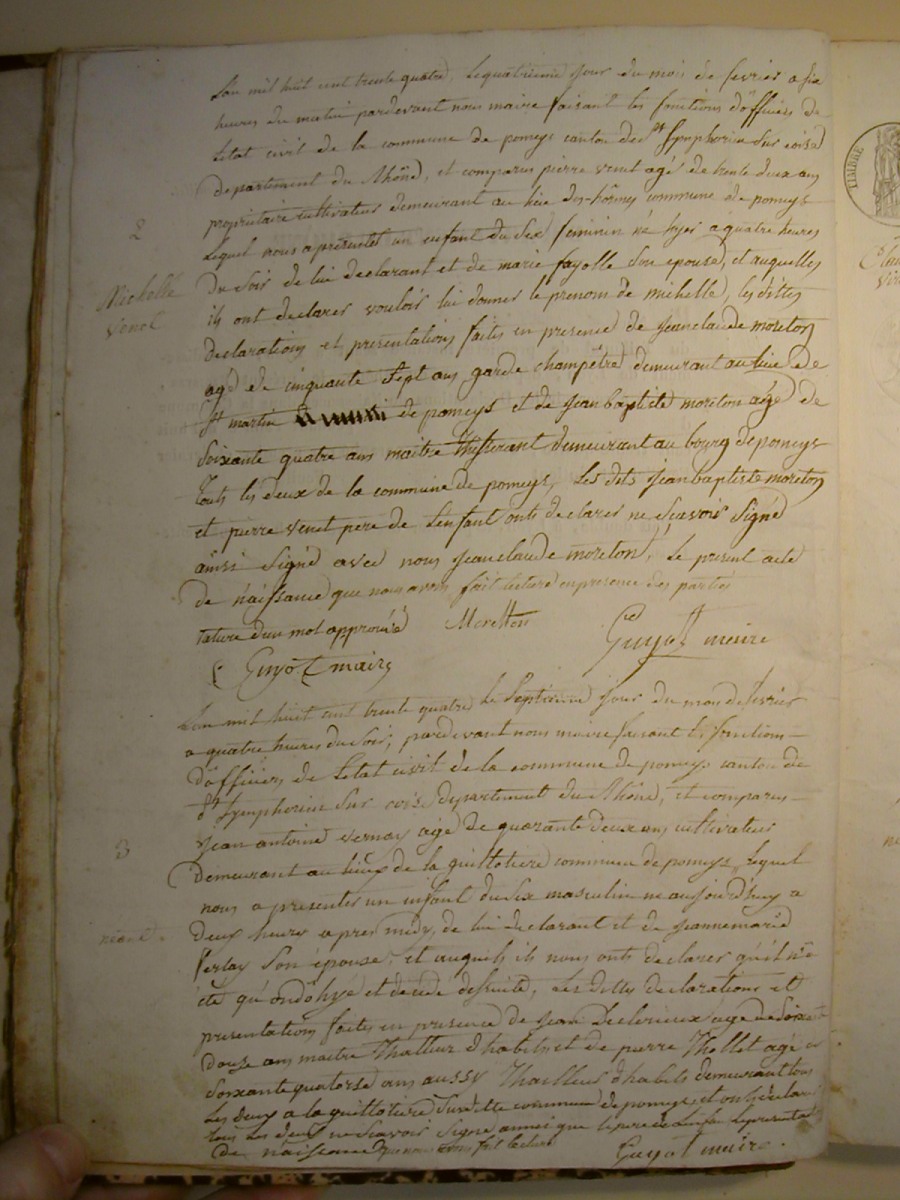 Lan mil huit cent trente quatre, Lequatrieme jour du mois de fevrier a six
heures du matin pardevant nous maire faisant les fonctions d'officier de
Letat civil de la commune de pomeys canton de St Symphorien sur coise
departement du Rhône, et comparus pierre venet agé de trente deux ans
propriaitaire cultivateur demeurant au lieu des hôrmes commune de pomeys
2
Lequel nous a presentet un enfant du Sex feminin né hyer a quatre heures
Michelle
Venet
Du Soir de lui declarant et de marie fayolle Son epouse, et auquelles
ils ont declarer vouloir lui donner le prenom de michelle, les dittes
declarations et presentations faites en presence de jeanclaude moreton
agé de cinquante Sept ans garde champêtre demeurant au lieu de
St martin de pomeys et de jean baptiste moreton agé de
Soixante quatre ans maitre thisserant demeurant au bourg de pomeys
touts les deux de la commune de pomeys, Les dits jean baptiste moreton
et pierre venet pere de L'enfant onts declarer ne Scavoir Signé
ainsi Signé avec nous jeanclaude moreton, Le present acte
de naissance que nous avons fait lecture en presence des parties
rature d'un mot approuvé Moretton Guyot maire
Guyot maire
Lan mil huit cent trente quatre le Septieme jour du mois de fevrier
a quatre heures du Soir, pardevant nous maire faisant les fonctions
d'officier de Letat civil de la commune de pomeys canton de
St Symphorien Sur coise departement du Rhône, et comparus
3
jean antoine vernay agé de quarante deux ans cultivateur
Demeurant au lieux de la guillotiere commune de pomeys Lequel
nous a presenter un enfant du Sex masculin ne aujourd'huy a
deux heures apres midy, de lui declarant et de jeannemarie
Son épouse, et auquels ils nous onts declarer qu'il n'a
été qu'ondohyé et decedé de suite, Les dittes declarations et
presentations faites en presence de jean agé de Soixante
douse ans maitre thailleur d'habits et de pierre Thollet agé de
Soixante quatorse ans aussy thailleur d'habits demeurant tous
Les deux a la guillotiere Susdite commune de pomeys, et onts declarer
tous Les deux ne Scavoir Signé ainsi que le pere de Lenfant Le present acte
de naissance que nous avons fait lecture Guyot maire.
TIMBRE